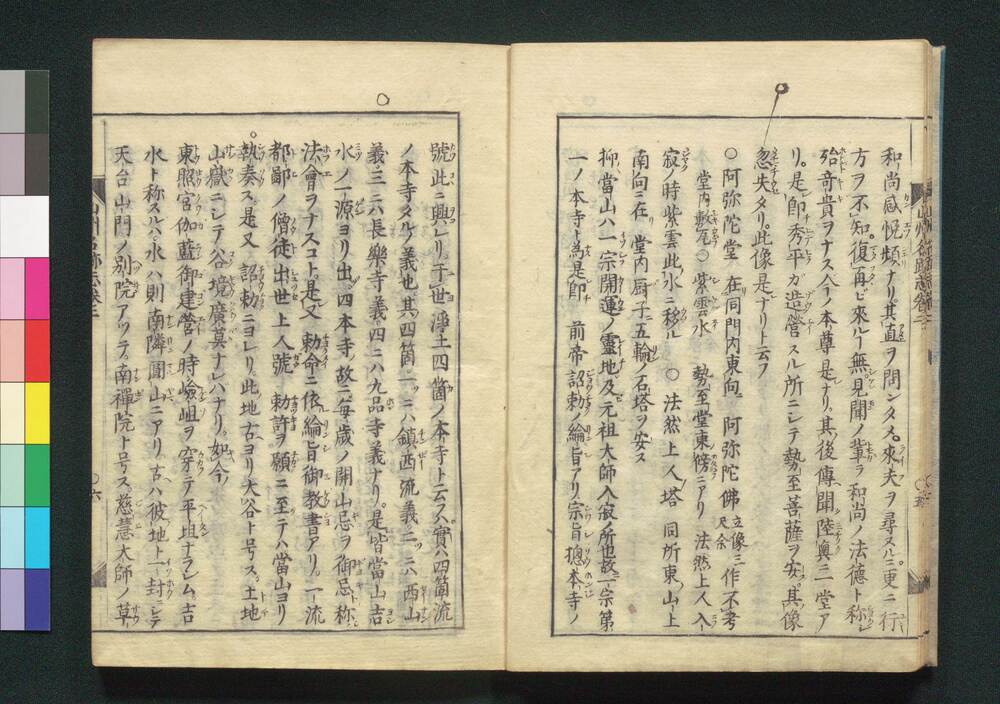 和尚感悦頻ナリ其直ヲ問ンタメ。來夫ヲ尋スルニ。更ニ行
方ヲ不知。復再ビ來ルー無。見聞ノ輩ラ和尚ノ法德ト称
殆奇貴ヲナス人ノ本尊是ナリ。其後傳聞陸奧ニ一堂ア
リ。是即秀平ガ造營スル所ニシテ勢至菩薩ヲ安。其像
忽失タリ。此像是ナリト云フ
○阿弥陀堂 在同門内東向 阿弥陀佛 立像三尺余 作不考
堂内敷瓦 ○紫雲水 勢至堂東傍ニアリ 法然上人入
寂ノ時紫雲此水ニ移ル ○法然上人塔 同所東山上
南向ニ在リ 堂内厨子ニ五輪ノ石塔ヲ安ス
抑當山ハ一宗開運ノ靈地及元祖大師入寂ノ所也故一宗第
一ノ本寺ト為是即 前帝詔勅ノ綸旨アリ。宗旨摠本寺ノ
號此ニ興レリ。于世淨土四箇ノ本寺ト云ヘ實ハ四箇流
ノ本寺タル義也其四箇一ツニハ鎮西流義。二ツニハ西山
義。三ニハ長樂寺義。四ニハ九品寺義ナリ。是皆當山ノ吉
水ノ一源ヨリ出。四本寺ノ故ニ毎歳ノ開山忌ヲ御忌ト称
法會ヲナスコト。是又 勅命ニ依綸旨御教書アリ。一流
都鄙ノ僧徒出世上人號 勅許ヲ願ニ至テハ當山ヨリ
執奏ス。是又 詔勅ニヨレリ。此地古ヨリ大谷ト号ス。土地
山嶽ニシテ谷境廣莫ナレハナリ。如今ノ
東照宮伽藍御建營ノ時嶮岨ヲ穿テ平坦ナラシム。吉
水ト称スルハ水ハ則南隣圓山ニアリ。古ハ彼地上一封ニシテ
天台山門ノ別院アツテ。南禪院ト号ス慈慧大師ノ草
○六